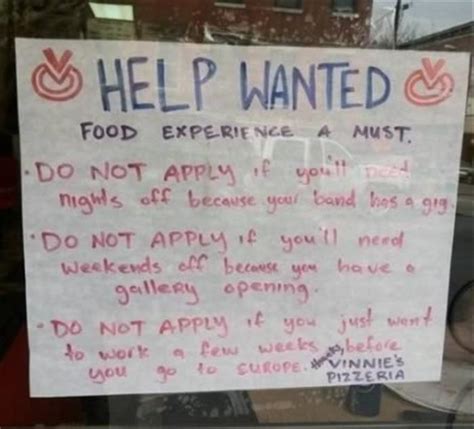 HELP WANTED
FOOD EXPERIENCE A MUST.
• DO NOT APPLY if you'll need
nights off because your band has a gig.
• DO NOT APPLY if you'll need
weekends off because you have a
gallery opening.
• DO NOT APPLY if you just want
to work a few weeks, before
you go to EUROPE. Thanks, VINNIE'S
PIZZERIA